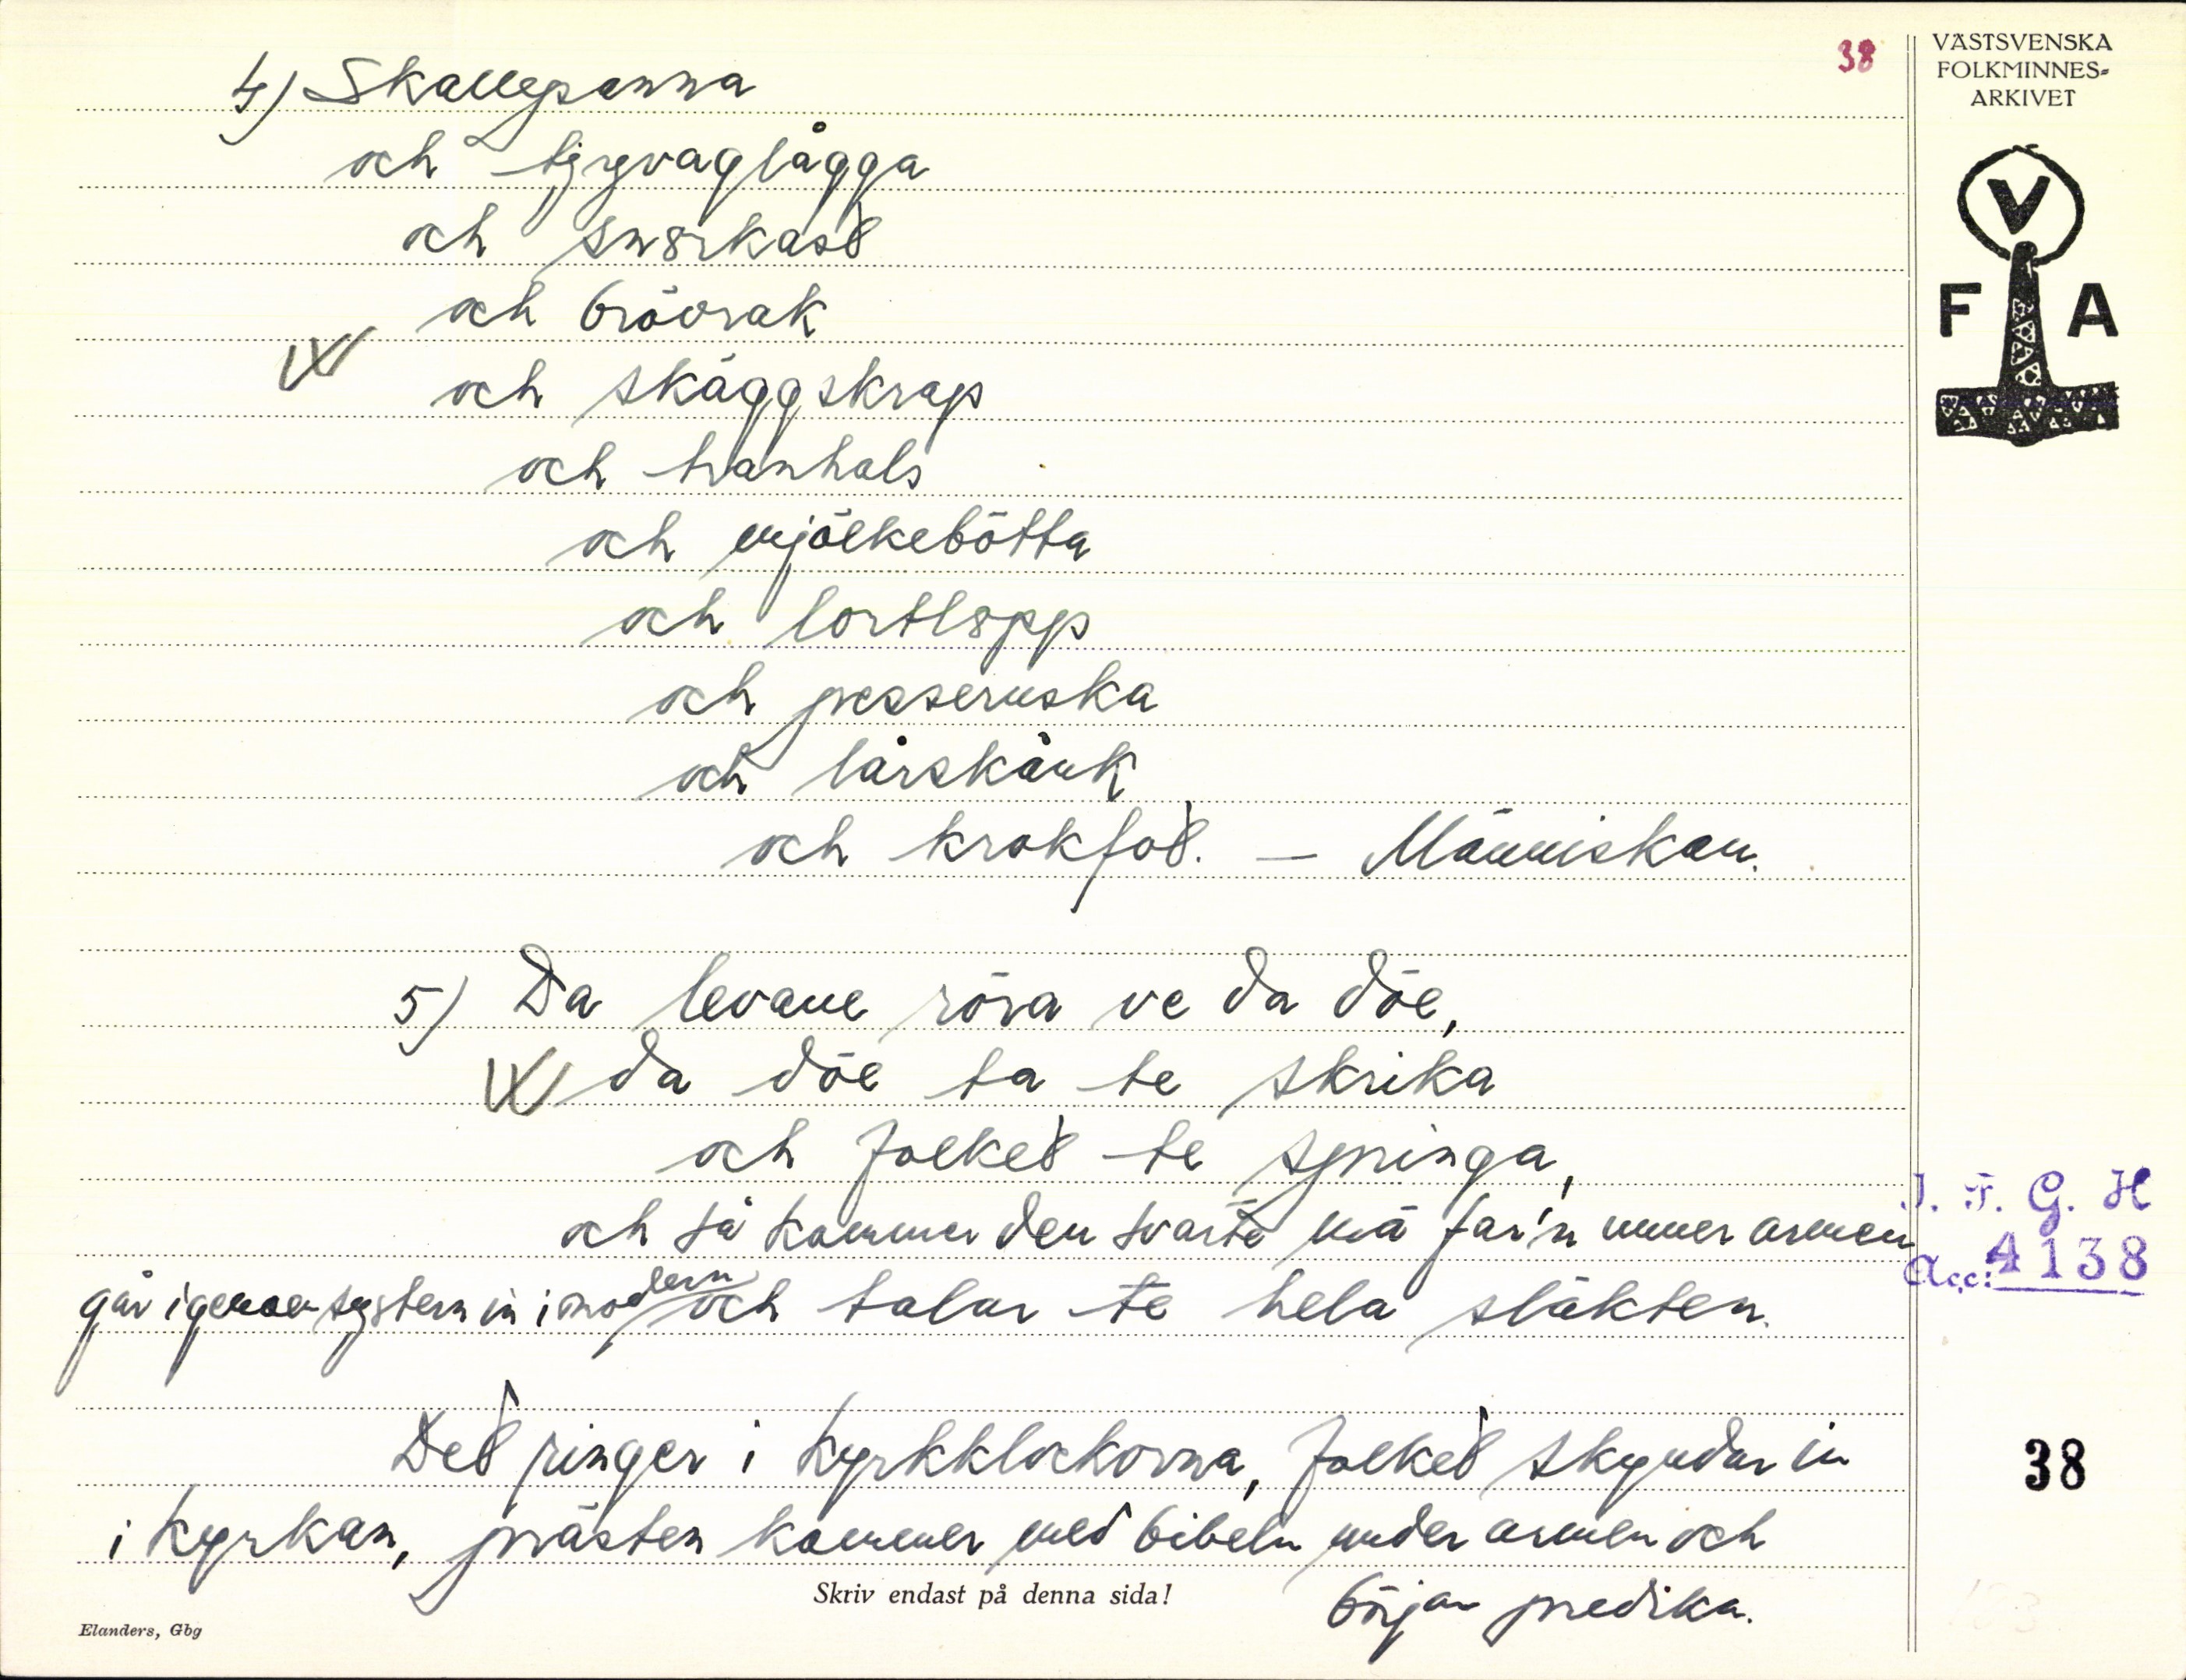 38
VÄSTSVENSKA
FOLKMINNES-
ARKIVET
V
F A
4) Skallepanna
och tjyvaglågga
och snorkast
och brövrak
och skäggskrap
och tranhals
och mjölkebötta
och lortlopp
och pesseruska
och lårskånk
och krokfot. — Människan.
5) Da levane röra ve da döe,
da döe ta te skrika
och folket te springa,
och så kommer den svarte mä far'n unner armen
går igenom systern in i modern och talar te hela släkten.
Det ringer i kyrkklockorna, folket skyndar in
i kyrkan, prästen kommer med bibeln under armen och
börjar predika.
I. F. G. H
Acc: 4138
38
Skriv endast på denna sida!
Elanders, Gbg